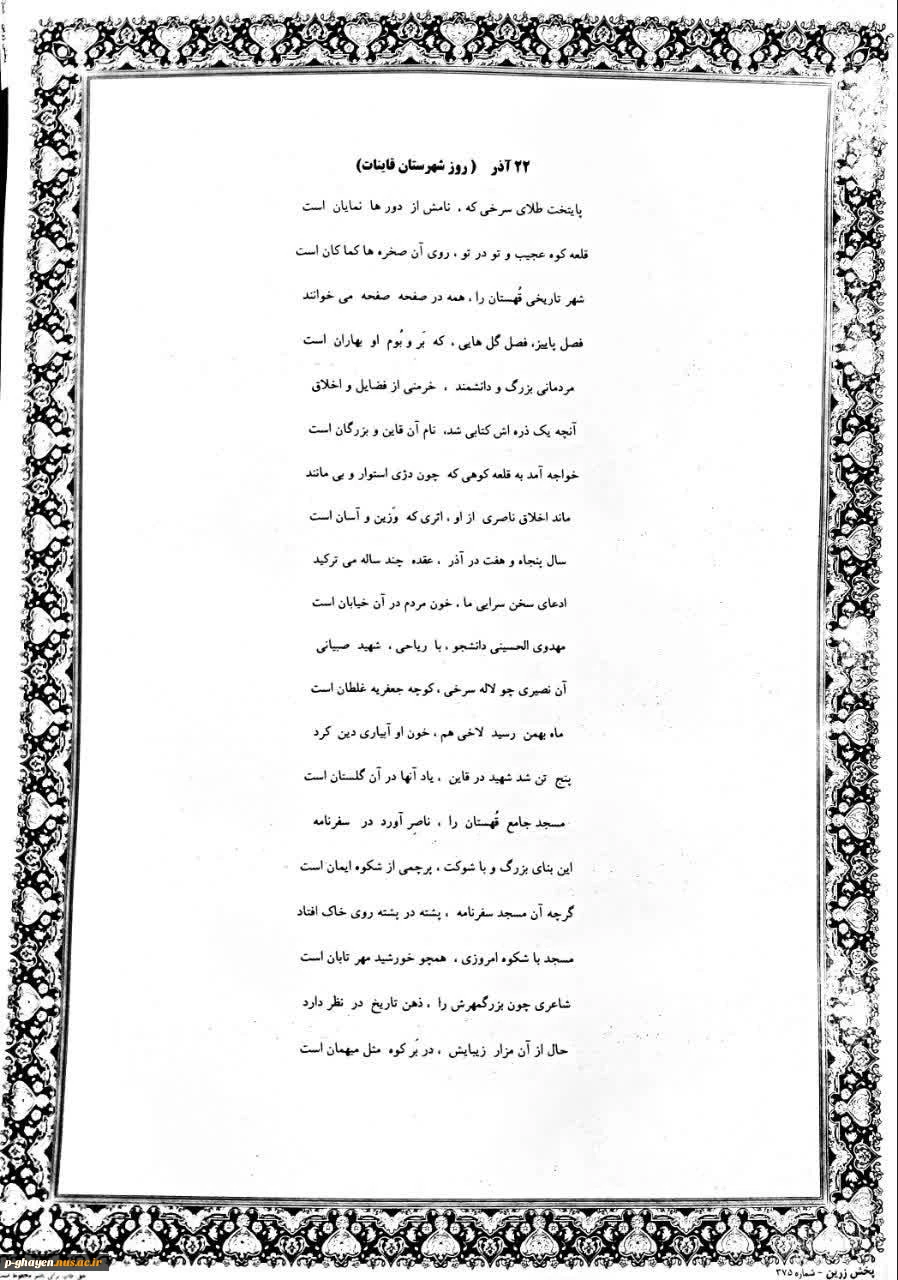 ۲۲ آذر (روز شهرستان قاینات)
پایتخت طلای سرخی که ، نامش از دور ها نمایان است
قلعه کوه عجیب و تو در تو ، روی آن صخره ها کما کان است
شهر تاریخی قُهستان را ، همه در صفحه صفحه می خوانند
فصل پاییز، فصل گل هایی ، که بَر و بُوم او بهاران است
مردمانی بزرگ و دانشمند ، خرمنی از فضایل و اخلاق
آنچه یک ذره اش کتابی شد، نام آن قاین و بزرگان است
خواجه آمد به قلعه کوهی که چون دژی استوار و بی مانند
ماند اخلاق ناصری از او ، اثری که وَزین و آسان است
سال پنجاه و هفت در آذر ، عقده چند ساله می ترکید
ادعای سخن سرایی ما ، خون مردم در آن خیابان است
مهدوی الحسینی دانشجو ، با ریاحی ، شهید صبیانی
آن نصیری چو لاله سرخی ، کوچه جعفریه غلطان است
ماه بهمن رسید لاخی هم ، خون او آبیاری دین کرد
پنج تن شد شهید در قاین ، یاد آنها در آن گلستان است
مسجد جامع قُهستان را ، ناصرِ آورد در سفرنامه
این بنای بزرگ و با شوکت ، پرچمی از شکوه ایمان است
گرچه آن مسجد سفرنامه ، پشته در پشته روی خاک افتاد
مسجد با شکوه امروزی ، همچو خورشید مهر تابان است
شاعری چون بزرگمهرش را ، ذهن تاریخ در نظر دارد
حال از آن مزار زیبایش ، در بَر کوه مثل میهمان است
پخش زرین - شماره ۳۷۵
p-ghayen.nus.ac.ir